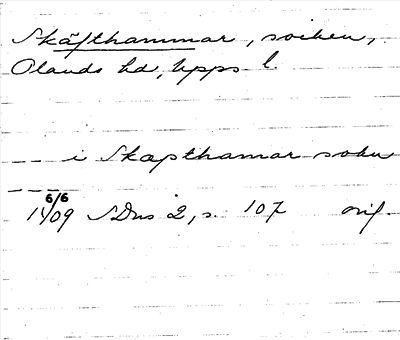 Skäfthammar, socken,
Olands hd, Upps l.
i Skapthamar sokn
6/6
1409 SDns 2, s. 107 orig.